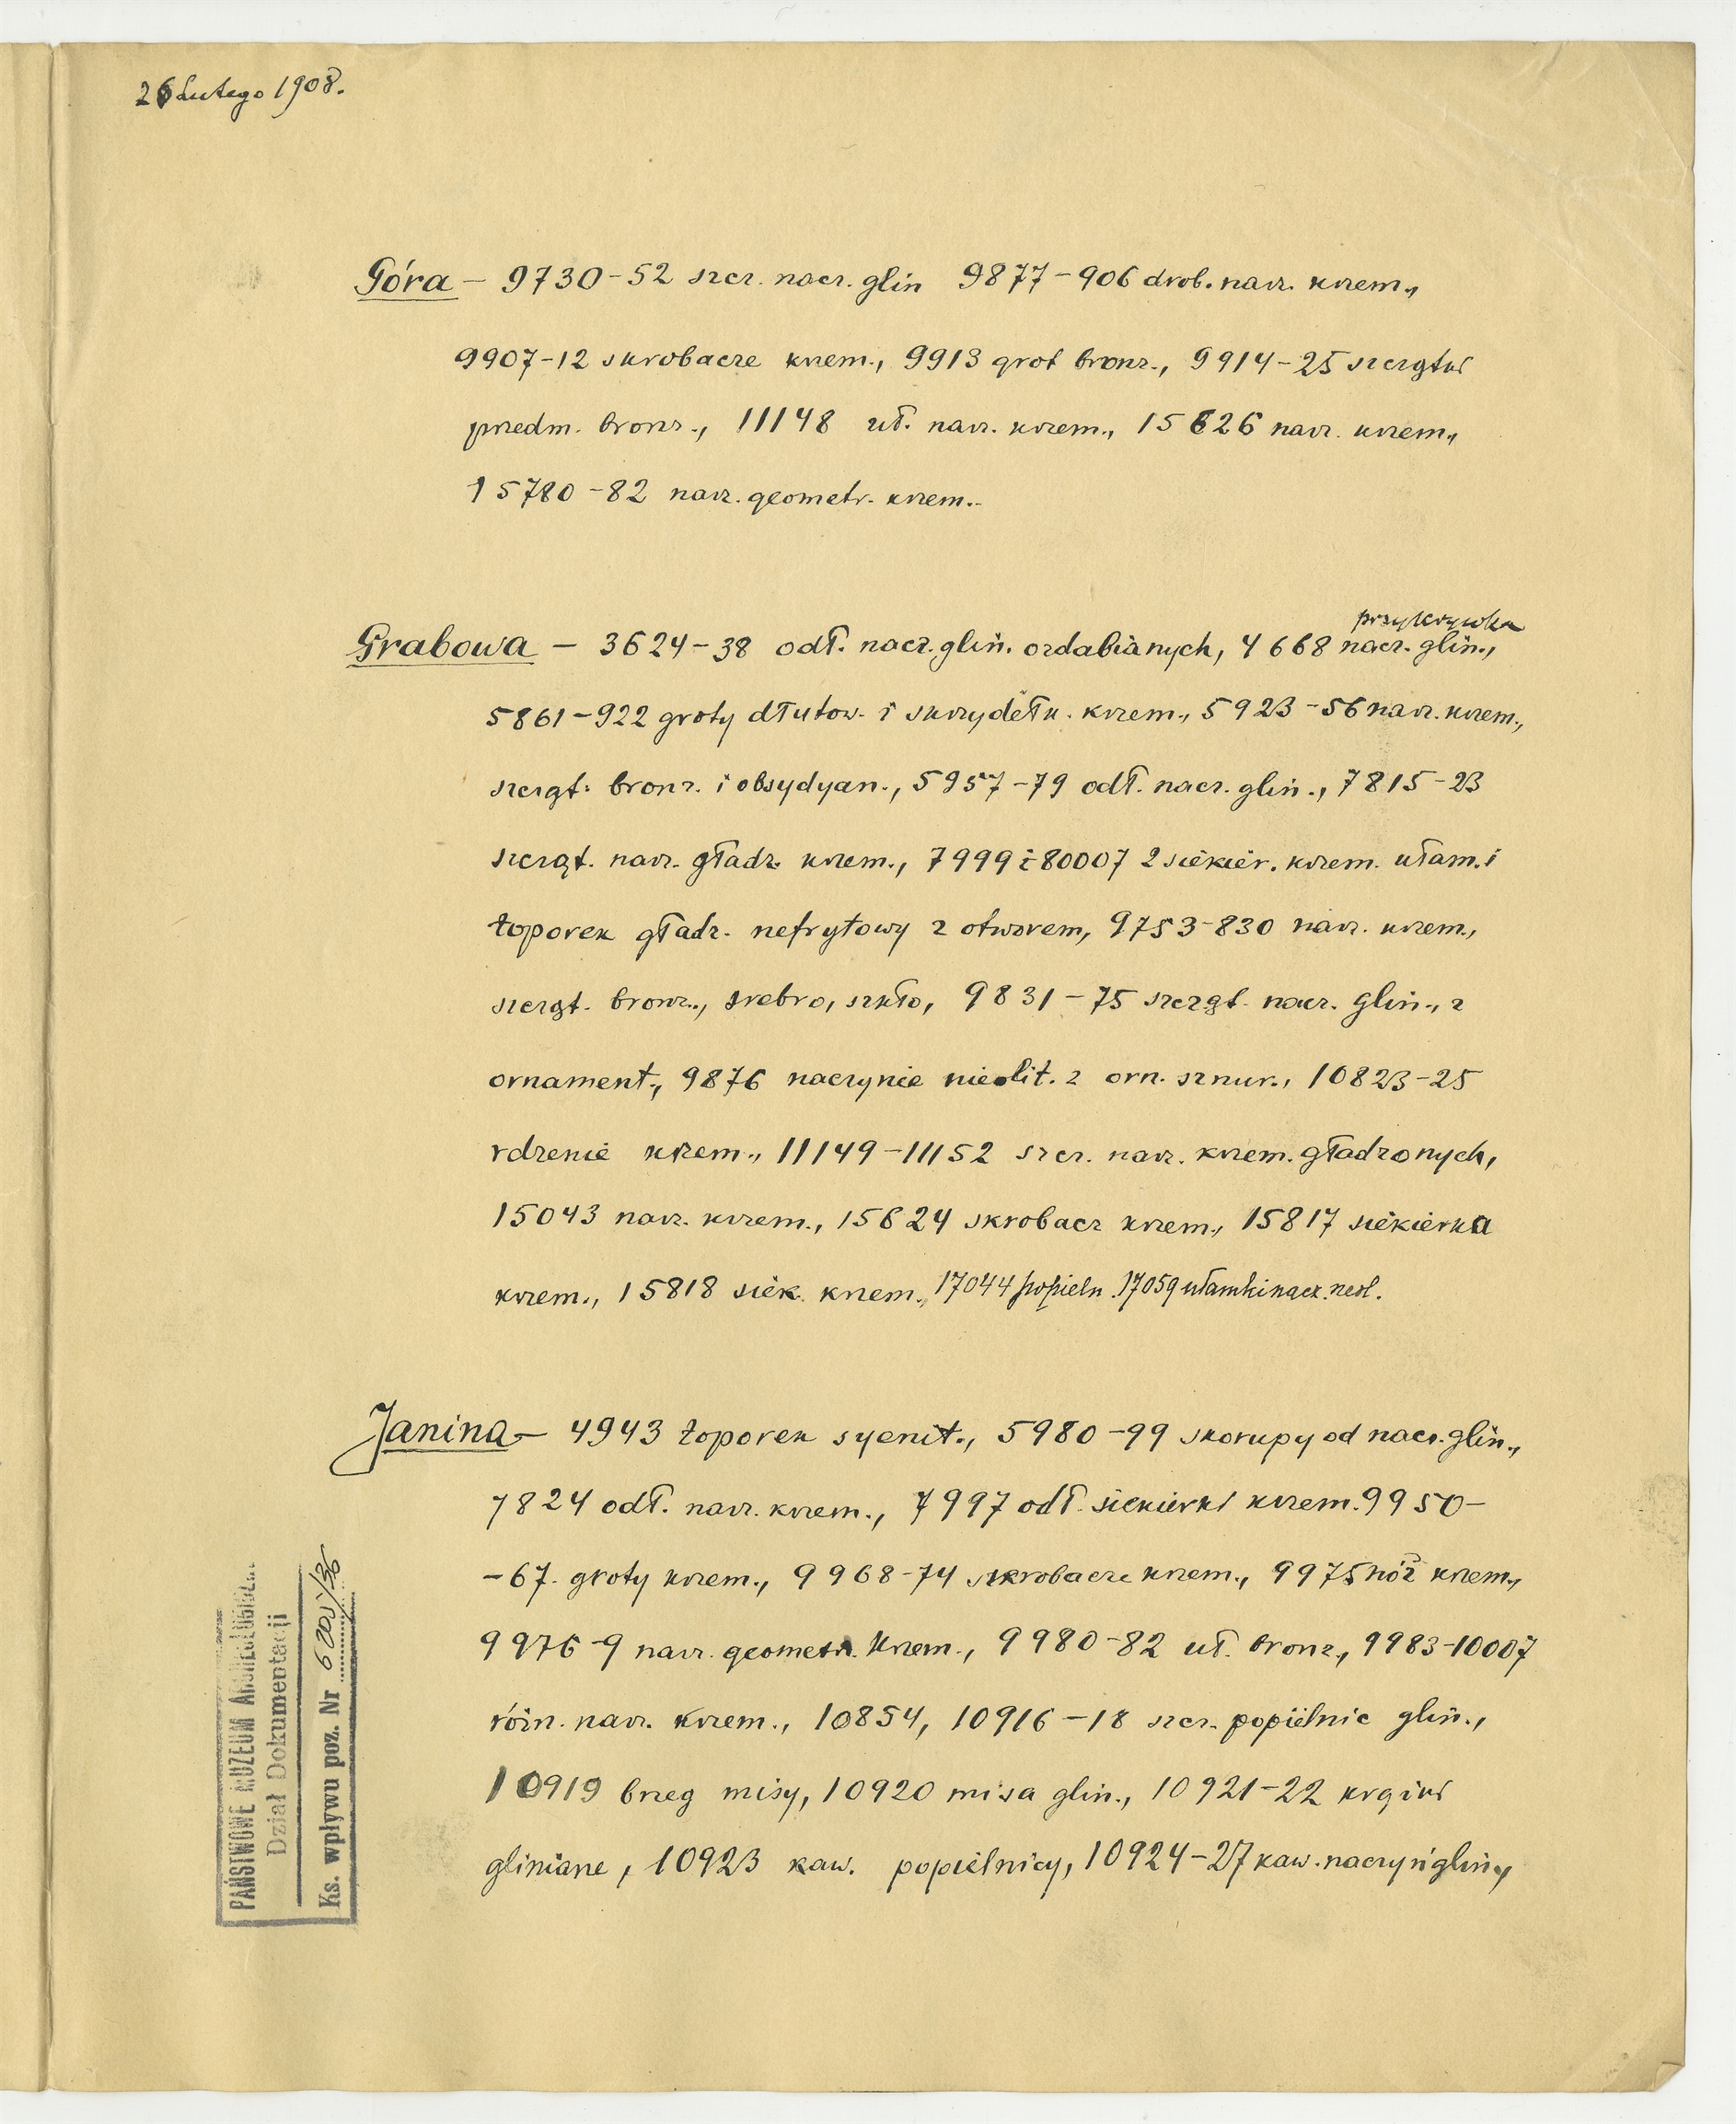 26 Lutego 1908.
Góra – 9730-52 szcz. nacz. glin 9877-906 drob. narz. krzem.,
9907-12 skrobacze krzem., 9913 grot bronz., 9914-25 szczątki
przedm. bronz., 11148 uł. narz. krzem., 15626 narz. krzem.,
15780-82 narz. geometr. krzem.
przykrywka
Grabowa – 3624-38 odł. nacz. glin. ozdabianych, 4668 nacz. glin.,
5861-922 groty dłutow. i skrzydełk. krzem., 5923-56 narz. krzem.,
szcząt. bronz. i obsydyan., 5957-79 odł. nacz. glin., 7815-23
szcząt. narz. gładz. krzem., 7999 i 80007 2 siekier. krzem. ułam. i
toporek gładz. nefrytowy z otworem, 9753-830 narz. krzem.,
szcząt. bronz., srebro, szkło, 9831-75 szcząt. nacz. glin., z
ornament., 9876 naczynie nieolit. z orn. sznur., 10823-25
rdzenie krzem., 11149-11152 szcz. narz. krzem. gładzonych,
15043 narz. krzem., 15624 skrobacz krzem., 15817 siekierka
krzem., 15818 siek. krzem., 17044 popieln. 17059 ułamki nacz. neol.
Janina – 4943 toporek syenit., 5980-99 skorupy od nacz. glin.,
7824 odł. narz. krzem., 7997 odł. siekierki krzem. 9950-
-67. groty krzem., 9968-74 skrobacze krzem., 9975 nóż krzem.,
9976-9 narz. geometr. krzem., 9980-82 uł. bronz., 9983-10007
różn. narz. krzem., 10854, 10916-18 szcz. popielnic glin.,
10919 brzeg misy, 10920 misa glin., 10921-22 krążki
gliniane, 10923 kaw. popielnicy, 10924-27 kaw. naczyń glin.,
PAŃSTWOWE MUZEUM
Dział Dokumentacji
Ks. wpływu poz. Nr